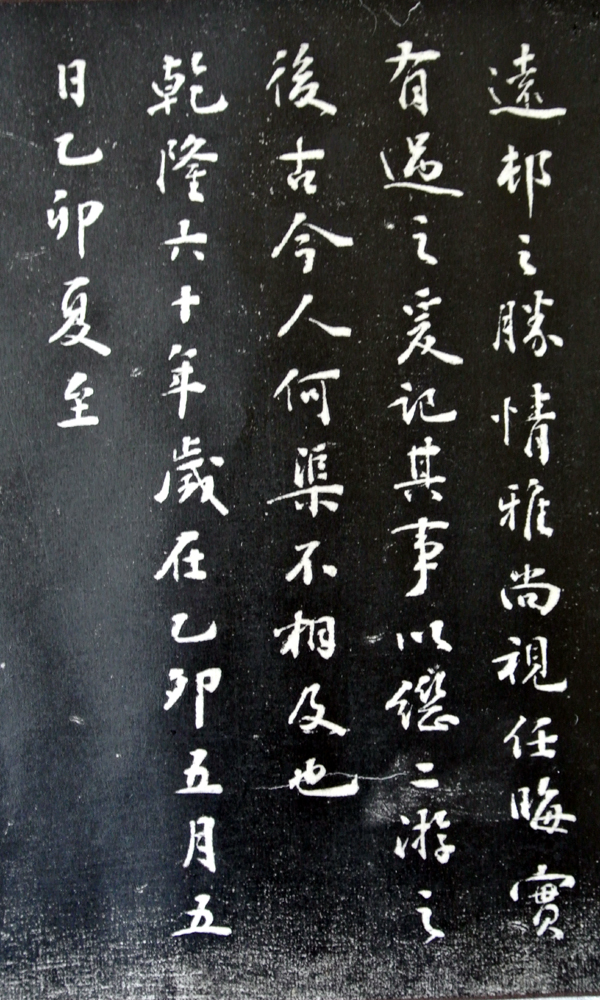 遠邨之勝情雅尚視任晦實
有過之爰記其事以繼二游之
後古今人何渠不相及也
乾隆六十年歲在乙卯五月五
日乙卯夏至